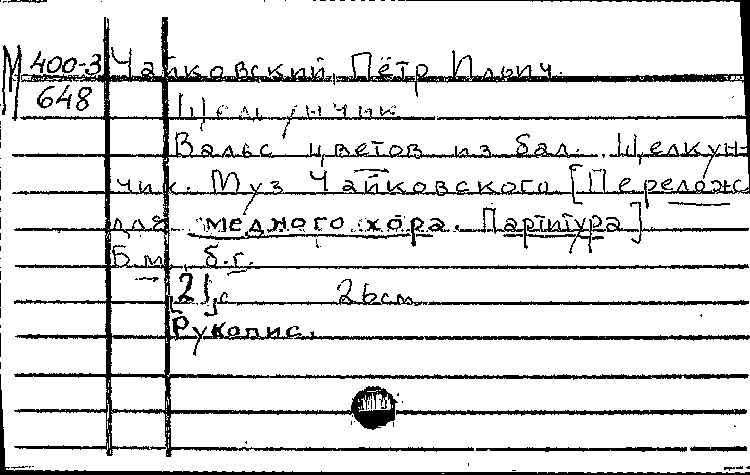 М 400-3 Чайковский, Пётр Ильич.
648 Щелкунчик
Вальс цветов из бал. Щелкун-
чик. Муз Чайковского [Перелож.
для медного хора. Партитура]
Б.м., б.г.
[21]с 26см
Рукопис.